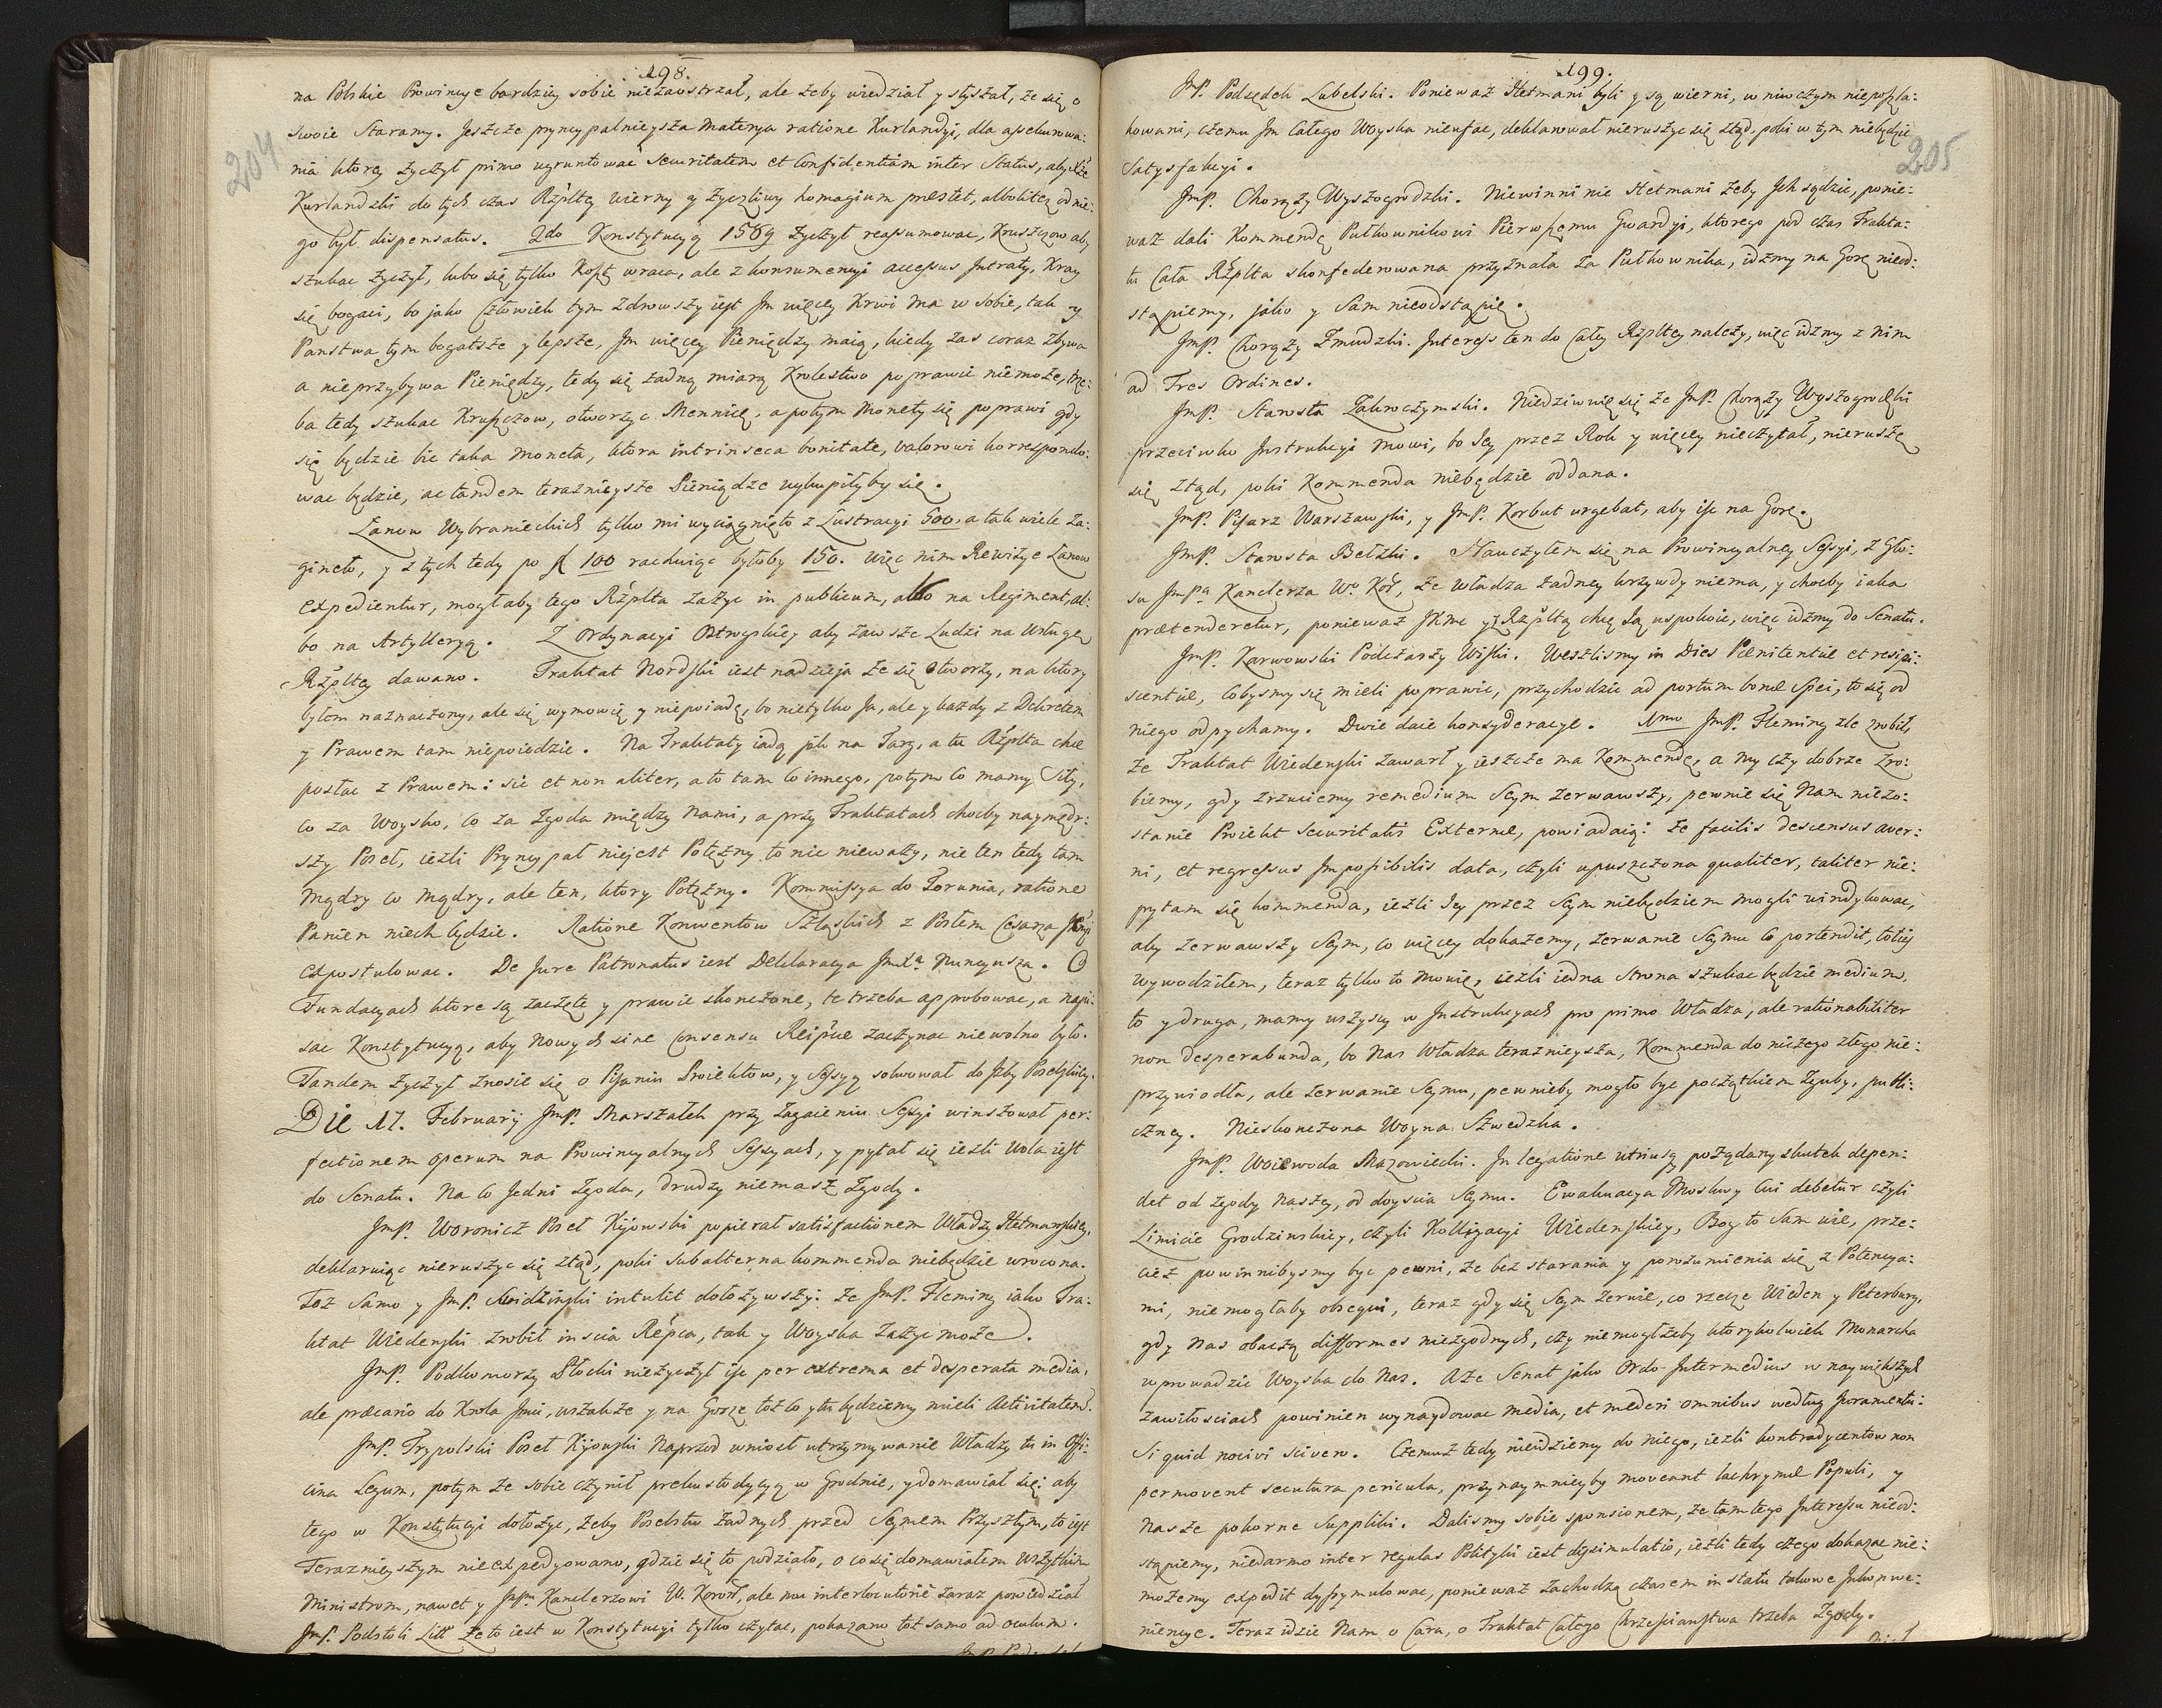 198.
204
na Polskie Prowincye bardziey sobie niezaostrzał, ale żeby wiedział y słyszał, że się o
swoie Staramy. Jeszcze pryncypalnieysza materya ratione Kurlandyi, dla assekurowa:
nia ktorey życzył primo ugruntować securitatem et Confidentiam inter Status, aby Xże
Kurlandzki do tych czas Rzpltey wierny y życzliwy homagium praestet, albolitez od nie:
go był dispensatus. 2do Konstytucyą 1569 życzył reassumować, Kruszcow aby
szukać życzył, lubo się tylko Koszt wraca, ale z konsumencyi accessus Intraty, Kray
się bogaci, bo jako Człowiek tym zdrowszy iest Im więcey Krwi ma w sobie, tak y
Panstwa tym bogatsze y lepsze, Im więcey Pieniędzy maią, kiedy zas coraz zbywa
a nieprzybywa Pieniędzy, tedy się żadną miarą Krolestwo poprawić niemoże, trze:
ba tedy szukać Kruszczow, otworzyć Mennicę, a potym Monety się poprawi gdy
się będzie bić taka moneta, ktora intrinseca bonitate, valorowi korrespondo:
wać będzie, ac tandem teraznieysze Pieniądze wykupiłyby się.
Łanow Wybranieckich tylko mi wyciągnięto z Lustracyi 500, a tak wiele za:
gineło, y z tych tedy po f 100 rachuiąc byłoby 150. więc nim Rewizye Łanow
expedientur, mogłaby tego Rzplta zażyć in publicum, albo na Regiment, al:
bo na Artylleryą. Z Ordynacyi Ostrogskiey aby zawsze Ludzi na Usługę
Rzpltey dawano. Traktat Nordzki iest nadzieja że się otworzy, na ktory
byłem naznaczony, ale się wymowię y niepoiadę, bo nietylko Ja, ale y każdy z Dekretem
y Prawem tam niepoiedzie. Na Traktaty iadą jak na Targ, a tu Rzplta chce
posłać z Prawem: sic et non aliter, a to tam co innego, potym co mamy Siły,
co za Woysko, co za Zgoda między nami, a przy Traktatach chocby naymędr:
szy Poseł, ieżli Pryncypał niejest Potężny to nic nieważy, nie ten tedy tam
Mądry co mądry, ale ten, ktory Potężny. Kommissya do Torunia, ratione
Panien niech będzie. Ratione Konwentow Szląskich z Posłem Cesarza Jmci
expostulować. De Jure Patronatus iest Deklaracya JmXa Nuncyusza. O
Fundacyach ktore są zaczęte y prawie skonczone, te trzeba approbować, a napi:
sać Konstytucyą, aby Nowych sine Consensu Reipcae zaczynać niewolno było.
Tandem życzył znosić się o Pisaniu Proiektow, y Sessyą solwował do Izby Poselskiey.
Die 17. February JmP. Marszałek przy zagaieniu Sessyi winszował per:
fectionem operum na Prowincyalnych Sessyach, y pytał się ieżli Wola iest
do Senatu. Na co Jedni zgoda, drudzy niemasz Zgody.
JmP. Woronicz Poseł Kijowski popierał satisfactionem Władzy Hetmanskiey,
deklaruiąc nieruszyć się ztąd, poki subalterna kommenda niebędzie wrocona.
Toż Samo y JmP. Swidzinski intulit dołożywszy: że JmP. Fleming iako Tra:
ktat Wiedenski zrobił inscia Repca, tak y Woyska zażyć może.
JmP. Podkomorzy Płocki nieżyczył iść per extrema et desperata media,
ale precario do Krola Jmci, wszakże y na Gorze toż co y tu będziemy mieli Activitatem.
JmP. Trypolski Poseł Kijowski naprzod wniosł utrzymywanie Władzy tu in Offi:
cina Legum, potym że sobie czynił prekustodycyą w Grodnie, y domawiał się: aby
tego w Konstytucyi dołożyć, żeby Poselstw żadnych przed Seymem Przyszłym, to iest
Teraznieyszym nieexpedyowano, gdzie się to podziało, o co się domawiałem wszytkim
Ministrom, nawet y JmPn Kanclerzowi W. Koroñ, ale mu interlocutorie zaraz powiedział
JmP. Podstoli Litt że to iest w Konstytucyi tylko czytać, pokazano toż samo ad oculum.
199.
205
JmP. Podsędek Lubelski. Ponieważ Hetmani byli y są wierni, w niwczym nieposzla:
kowani, czemu Jm Całego Woyska nieufać, deklarował nieruszyć się ztąd, poki w tym niebędzie
Satysfakcyi.
JmP. Chorąży Wyszogrodzki. Niewinni nie Hetmani żeby Jch sądzić, ponie:
waż dali Kommendę Pułkownikowi Pierwszemu Gwardyi, ktorego pod czas Trakta:
tu Cała Rzplta skonfederowana przyznała za Pułkownika, idzmy na Gorę nieod:
stąpiemy, jako y Sam nieodstąpię.
JmP. Chorąży Zmudzki. Interess ten do Całey Rzpltey należy, więc idzmy z nim
ad Tres Ordines.
JmP. Starosta Zakroczymski. Niedziwuię się że JmP. Chorąży Wyszogrodzki
przeciwko Instrukcyi mowi, bo Jey przez Rok y więcey nieczytał, nieruszę
się ztąd, poki Kommenda niebędzie oddana.
JmP. Pisarz Warszawski, y JmP. Korbut urgebat, aby iść na Gorę.
JmP. Starosta Bełzki. Nauczyłem się na Prowincyalney Sessyi, z Gło:
su JmPa Kanclerza Wo Koř, że Władza żadney krzywdy niema, y chocby iaka
praetenderetur, ponieważ JKMć y Rzplta chcą Ją uspokoić, więc idzmy do Senatu.
JmP. Karwowski Podczaszy Wiski. Weszlismy in Dies Paenitentiae et resipi:
scentiae, Cobysmy się mieli poprawić, przychodzić ad portum bonae Spei, to się od
niego odpychamy. Dwie daie konsyderacye. 1mo JmP. Fleming zle zrobił,
że Traktat Wiedenski zawarł y ieszcze ma Kommendę, a my czy dobrze zro:
biemy, gdy zrzuciemy remedium Seym zerwawszy, pewnie się Nam niezo:
stanie Proiekt Securitatis Externae, powiadaią: że facilis descensus aver:
ni, et regressus Impossibilis data, czyli upuszczona qualiter, taliter nie:
pytam się kommenda, ieżli Jey przez Seym niebędziem mogli windykować,
aby zerwawszy Seym, co więcey dokażemy, zerwanie Seymu co portendit, totiey
wywodziłem, teraz tylko to mowię, ieżli iedna strona szukać będzie medium,
to y druga, mamy wszyscy w Instrukcyach pro primo Władza, ale rationabiliter
non desperabunda, bo Nas Władza teraznieysza, Kommenda do niczego złego nie:
przywiodła, ale zerwanie Seymu, pewnieby mogło być początkiem Zguby, publi:
czney. Nieskonczona Woyna Szwedzka.
JmP. Woiewoda Mazowiecki. In legatione utriusq pożądany skutek depen:
det od zgody naszey, od doyscia Seymu. Ewakuacya Moskwy Cui debetur czyli
Limicie Grodzinskiey, czyli Kolligacyi Wiedenskiey, Bog to Sam wie, prze:
cież powinnibysmy być pewni, że bez starania y porozumienia się z Potencya:
mi, niemogłaby obsequi, teraz gdy się Seym zerwie, co rzecze Wieden y Peterburg,
gdy Nas obaczą difformes niezgodnych, czy niemogłżeby ktorykolwiek Monarcha
wprowadzić Woyska do Nas. A że Senat jako Ordo Intermedius w naywiększych
zawiłosciach powinien wynaydować media, et mederi omnibus według Juramentu:
Si quid nocivi sciven. Czemuż tedy nieidziemy do niego, ieżli kontradycentow non
permovent secutura pericula, przynaymnieyby moveant lachrymae Populi, y
nasze pokorne Suppliki. Dalismy sobie sponsionem, że tamtego Interessu nieod:
stąpiemy, niedarmo inter regulas Polityki iest dissimulatio, ieżli tedy czego dokazać nie:
możemy expedit dyssymulować, ponieważ zachodzą czasem in statu takowe Inkonwe:
niencye. Teraz idzie Nam o Cara, o Traktat Całego Chrzescianstwa trzeba Zgody.